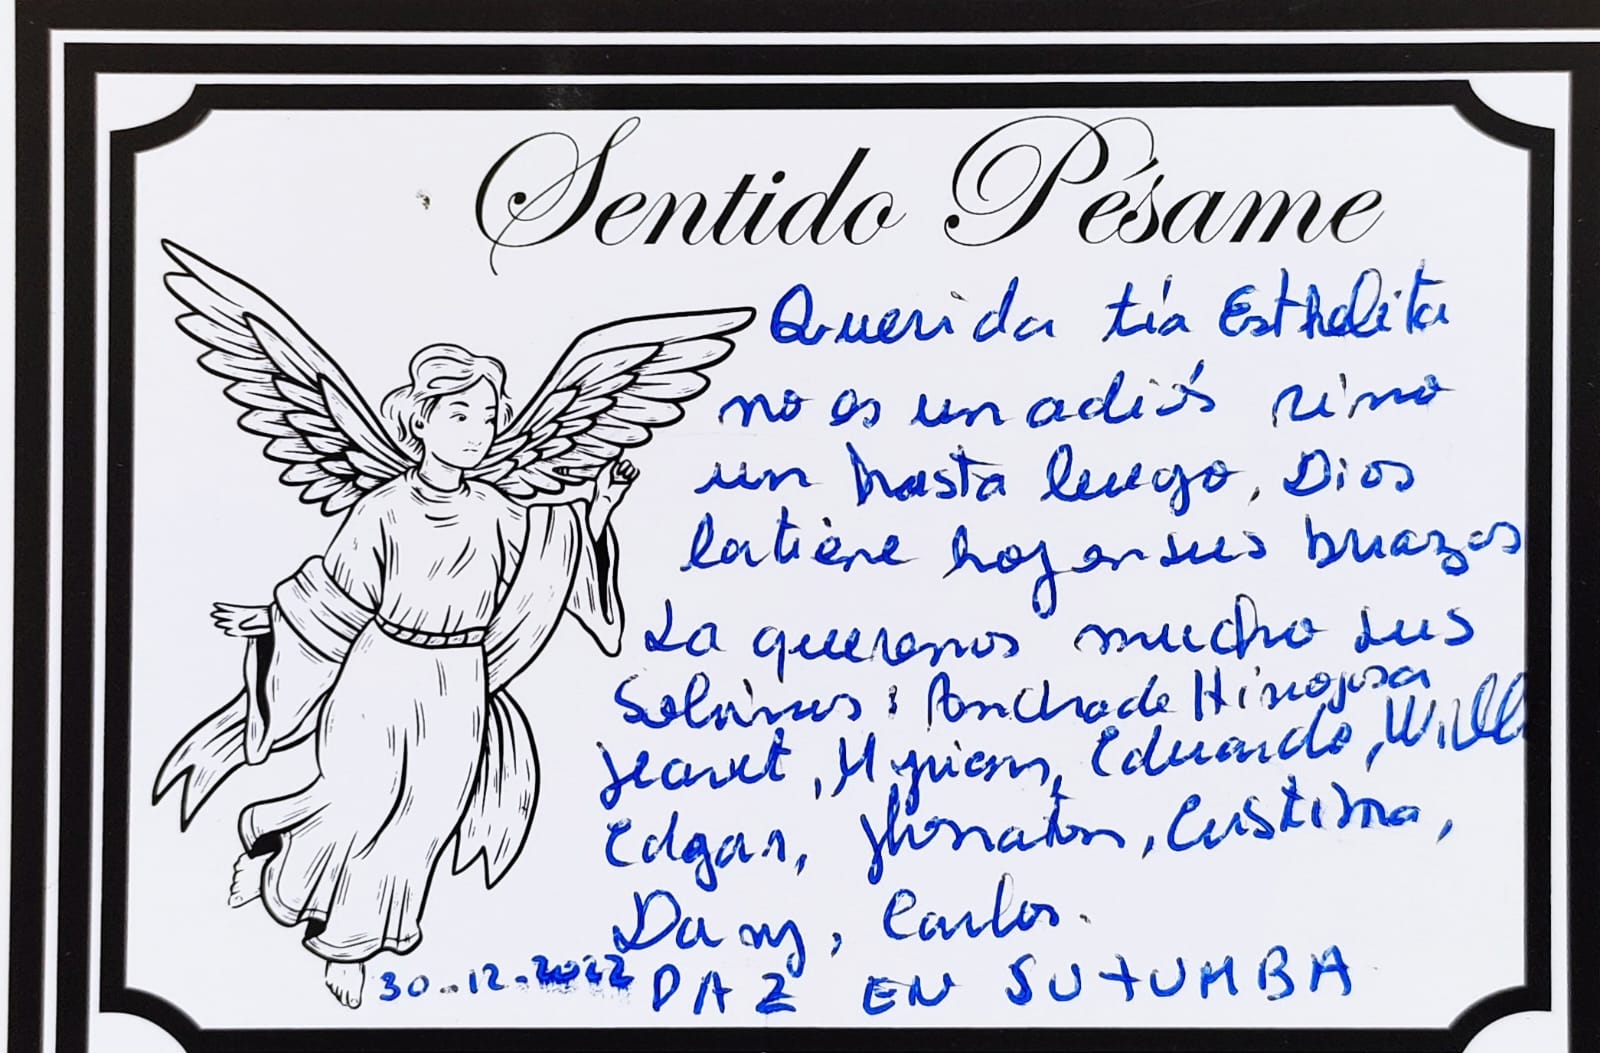 Sentido Pésame
Querida tía Esthelita
no es un adiós sino
un hasta luego, Dios
la tiene hoy en sus brazos
La queremos mucho sus
Sobrinos: Panchade Hinojosa
Jeanet, Myriam, Eduardo, Will
Edgar, Jhonatan, Cristina,
Dany, Carlos.
30-12-2022 PAZ EN SU TUMBA